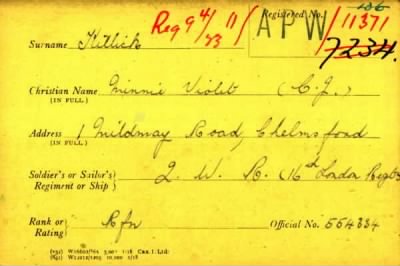 106
Reg 9 4/23 11/
Registered No. /11371
APW
7234.
Surname Kitlick
Christian Name Minnie Violet (C.J.)
(IN FULL)
Address 1 Mildmay Road, Chelmsford
(IN FULL)
Soldier's or Sailor's
Regiment or Ship Q. W. R. (16th London Regt)
Rank or
Rating Rfn Official No. 554334